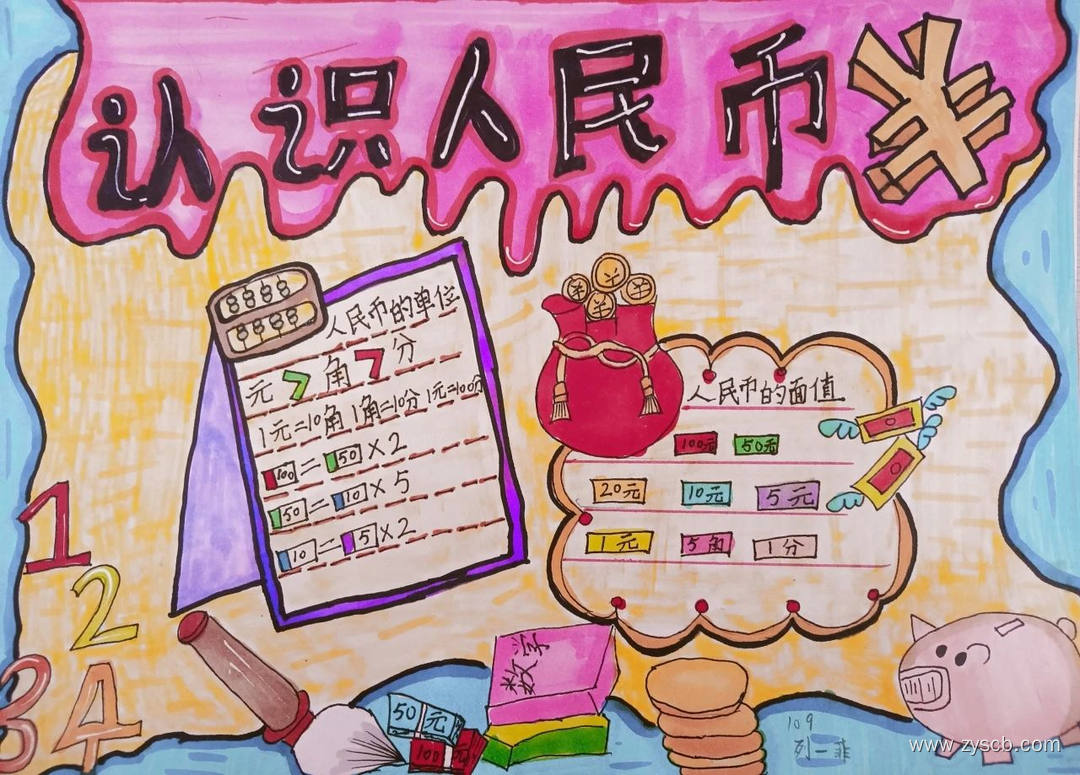 认识人民币
人民币的单位
元>角>分
1元=10角 1角=10分 1元=100分
100=50×2
50=10×5
10=5×2
人民币的面值
100元 50元
20元 10元 5元
1元 5角 1分
1
2
3 4
数学
50元
100元
109
列一菲
www.zyscb.com